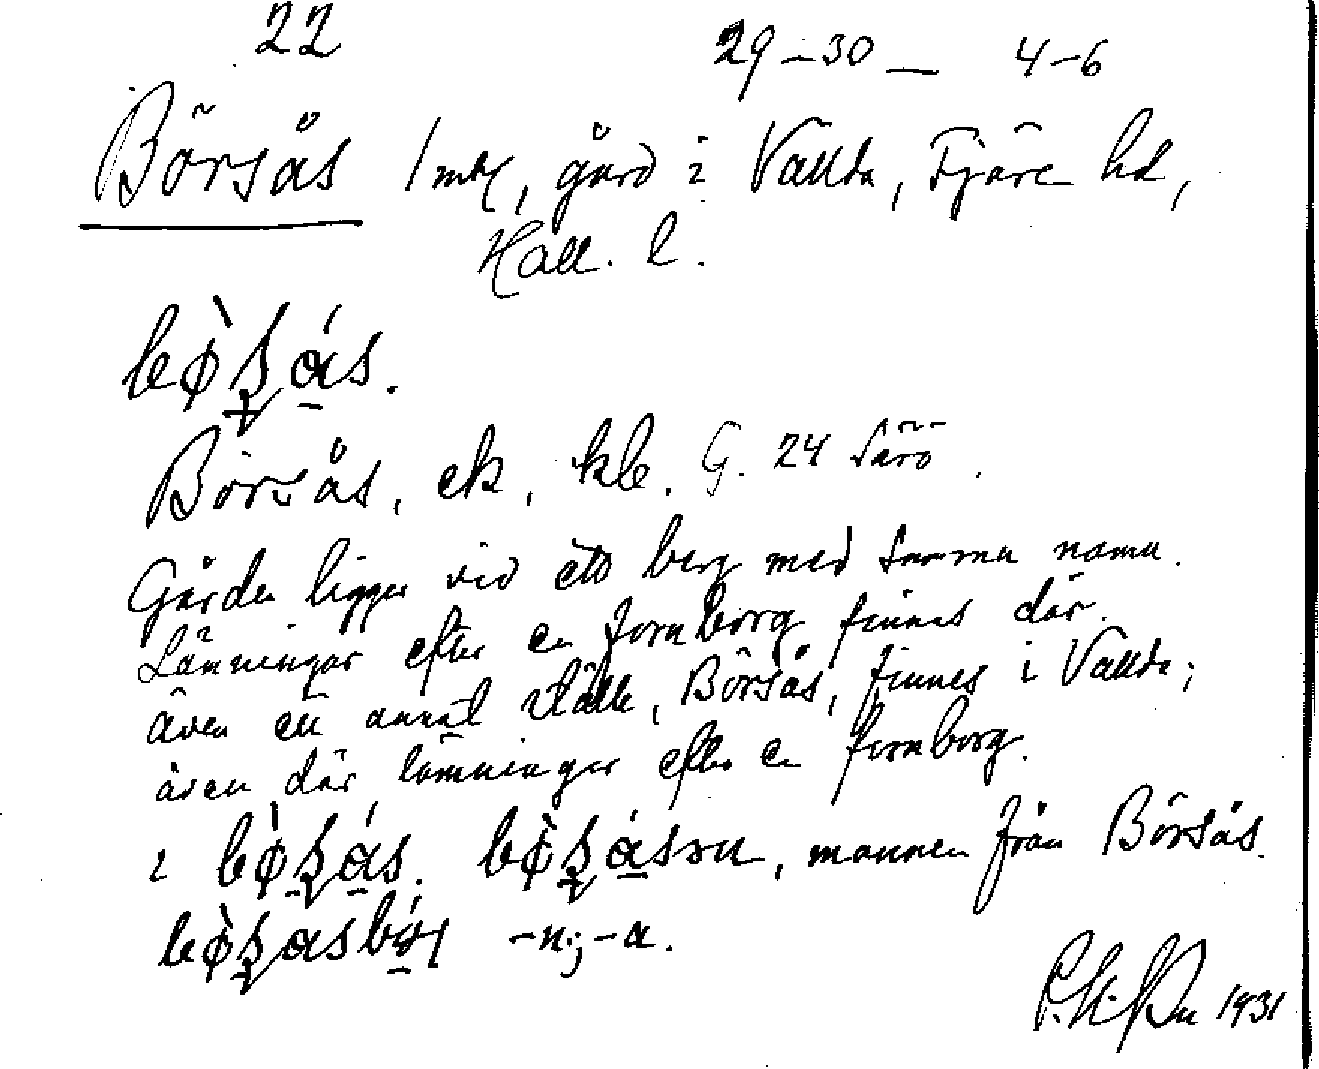 22 29–30 — 4–6
Börsås 1 mtl, gård i Vallda, Fjäre hd,
Hall. l.
Börsås, ek, kb. G. 24 Särö.
Gården ligger vid ett berg med samma namn.
Lämningar efter en fornborg finnes där.
även ett annat ställe, Börsås, finnes i Vallda;
även där lämningar efter en fornborg.
i , mannen från Börsås.
-n; -a.
1931